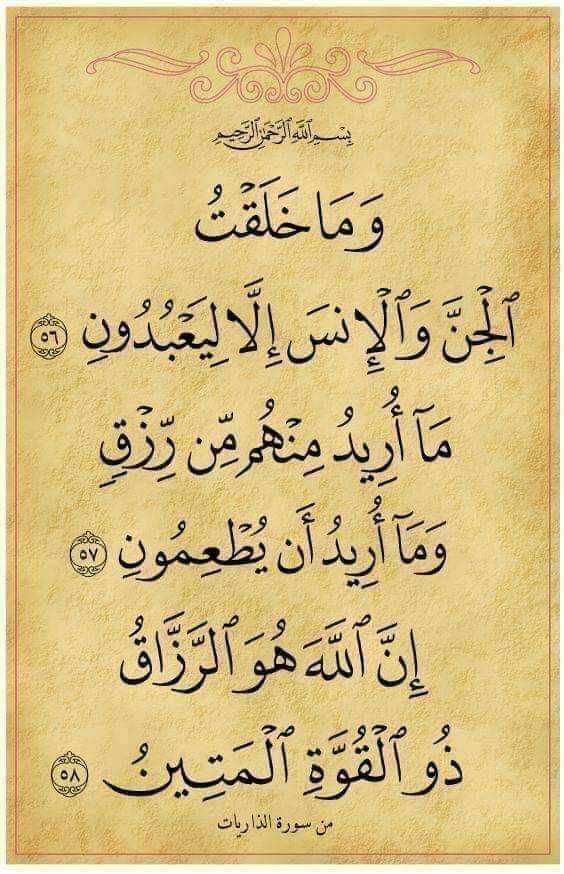 بِسْمِ ٱللَّهِ ٱلرَّحْمَٰنِ ٱلرَّحِيمِ
وَمَا خَلَقْتُ
ٱلْجِنَّ وَٱلْإِنسَ إِلَّا لِيَعْبُدُونِ ٥٦
مَآ أُرِيدُ مِنْهُم مِّن رِّزْقٍ
وَمَآ أُرِيدُ أَن يُطْعِمُونِ ٥٧
إِنَّ ٱللَّهَ هُوَ ٱلرَّزَّاقُ
ذُو ٱلْقُوَّةِ ٱلْمَتِينُ ٥٨
من سورة الذاريات